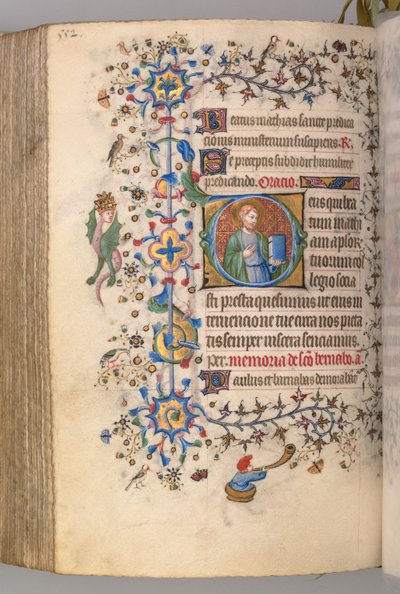 552.
Beatus mathias sancte predica
cionis ministerium suscipiens. R.
Se preceptis subdidit humiliter
predicando. Oracio.
Deus qui bea
tum mathi
am aplor
tuorum col
legio socia
sti presta quesumus ut eius in
tervencione tue circa nos pieta
tis semper viscera senciamus.
per. memoria de sco bernabo. a.
Paulus et barnabas demorabāt